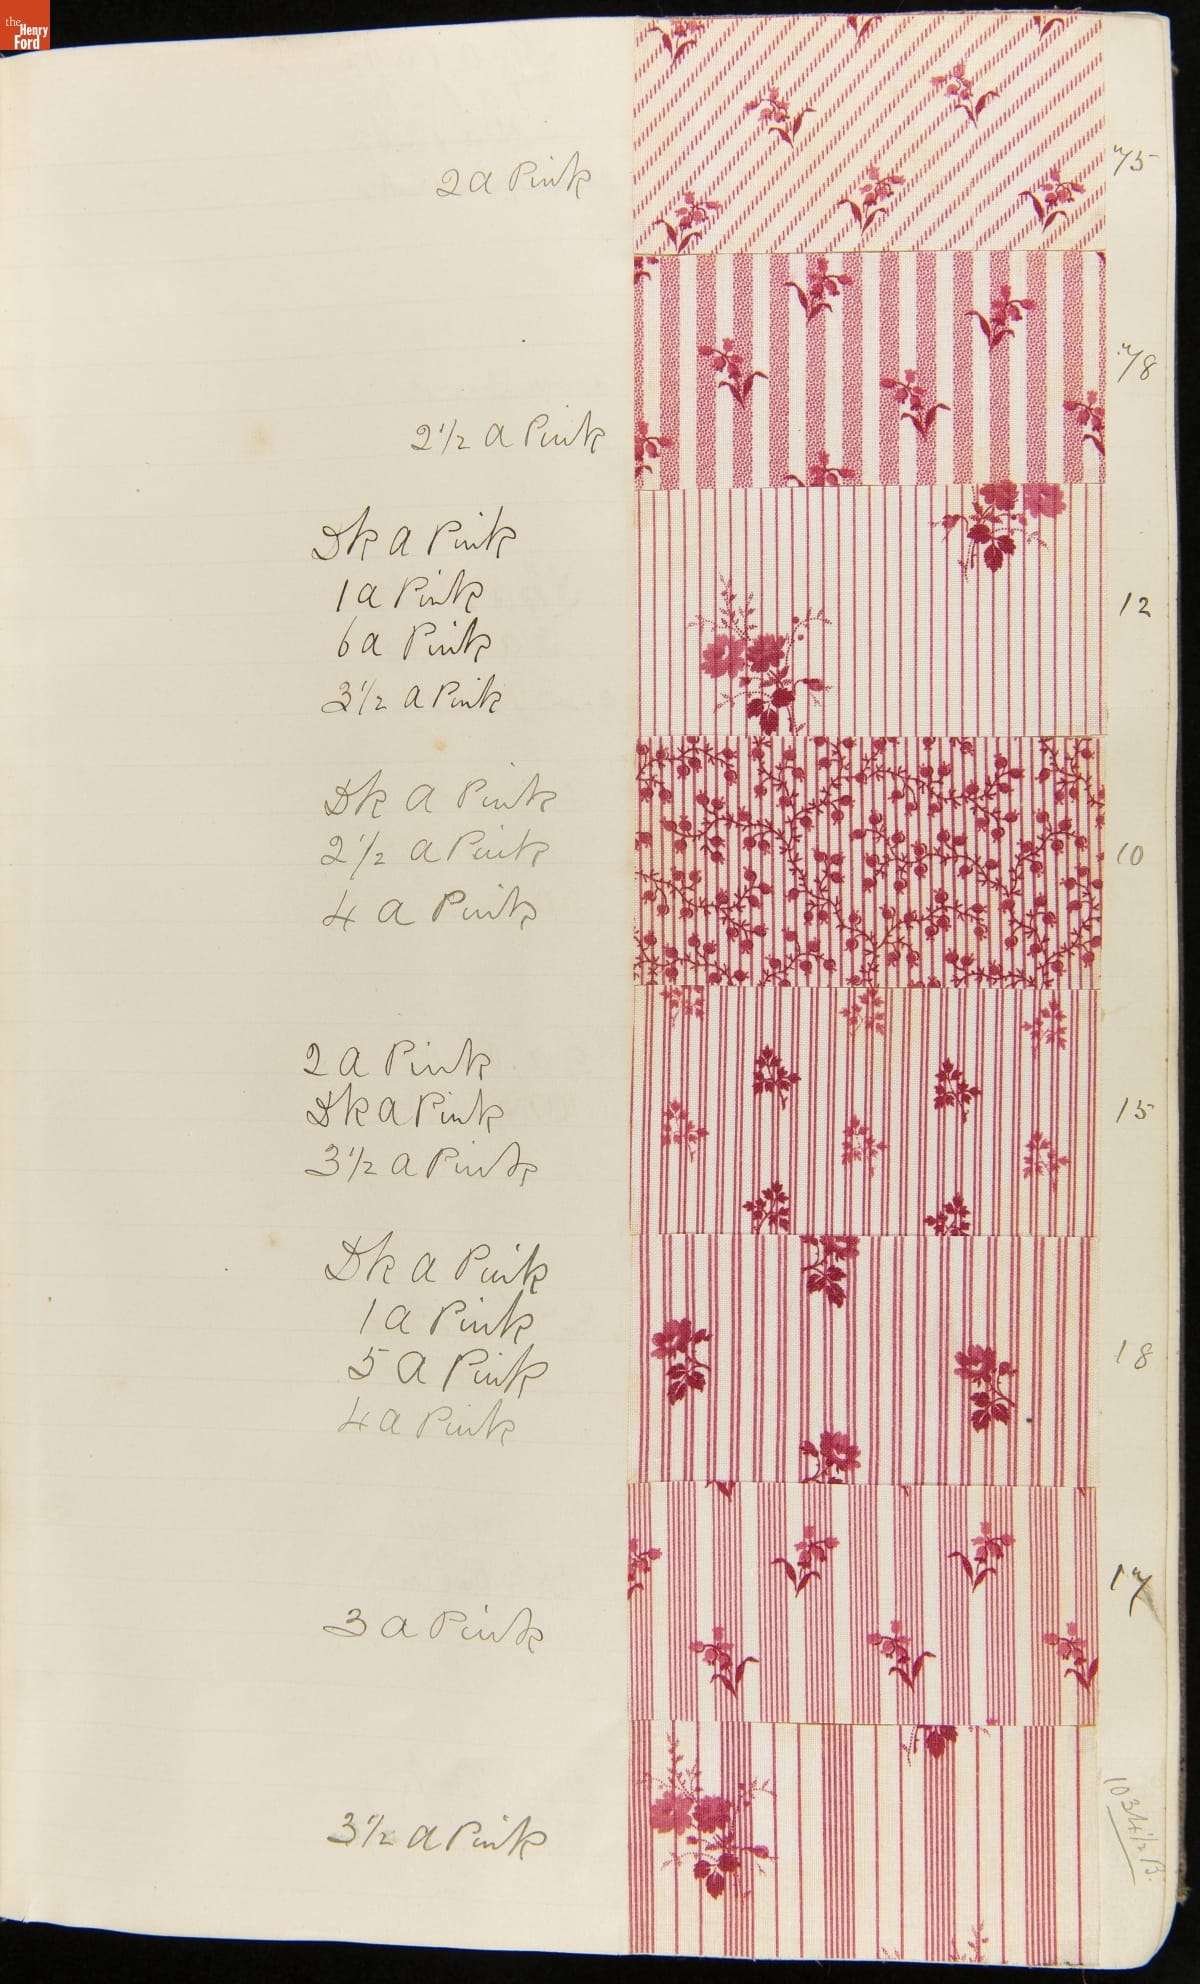 the Henry Ford
2 a Pink
75
78
2 1/2 a Pink
Dk a Pink
1 a Pink
12
6 a Pink
3 1/2 a Pink
Dk a Pink
2 1/2 a Pink
10
4 a Pink
2 a Pink
Dk a Pink
15
3 1/2 a Pink
Dk a Pink
1 a Pink
18
5 a Pink
4 a Pink
17
3 a Pink
3 1/2 a Pink